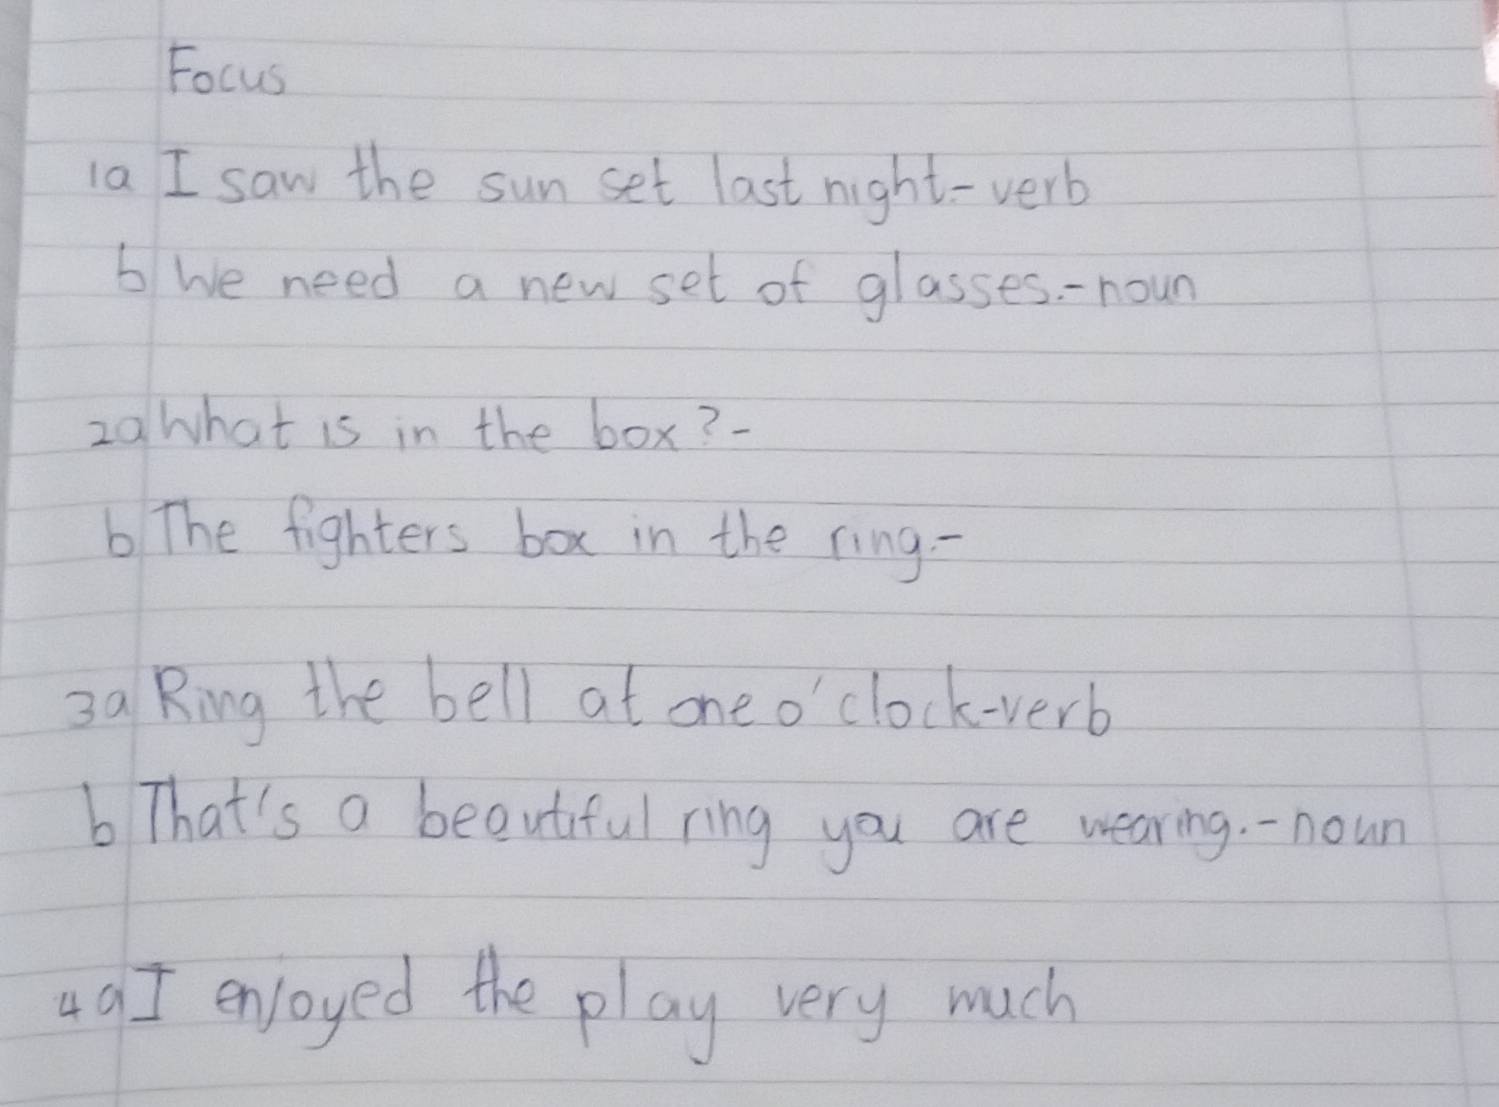 Focus
1a I saw the sun set last night.-verb
b We need a new set of glasses.-noun
2a What is in the box?-
b The fighters box in the ring.-
3a Ring the bell at one o'clock-verb
b That's a beautiful ring you are wearing.-noun
4a I enjoyed the play very much